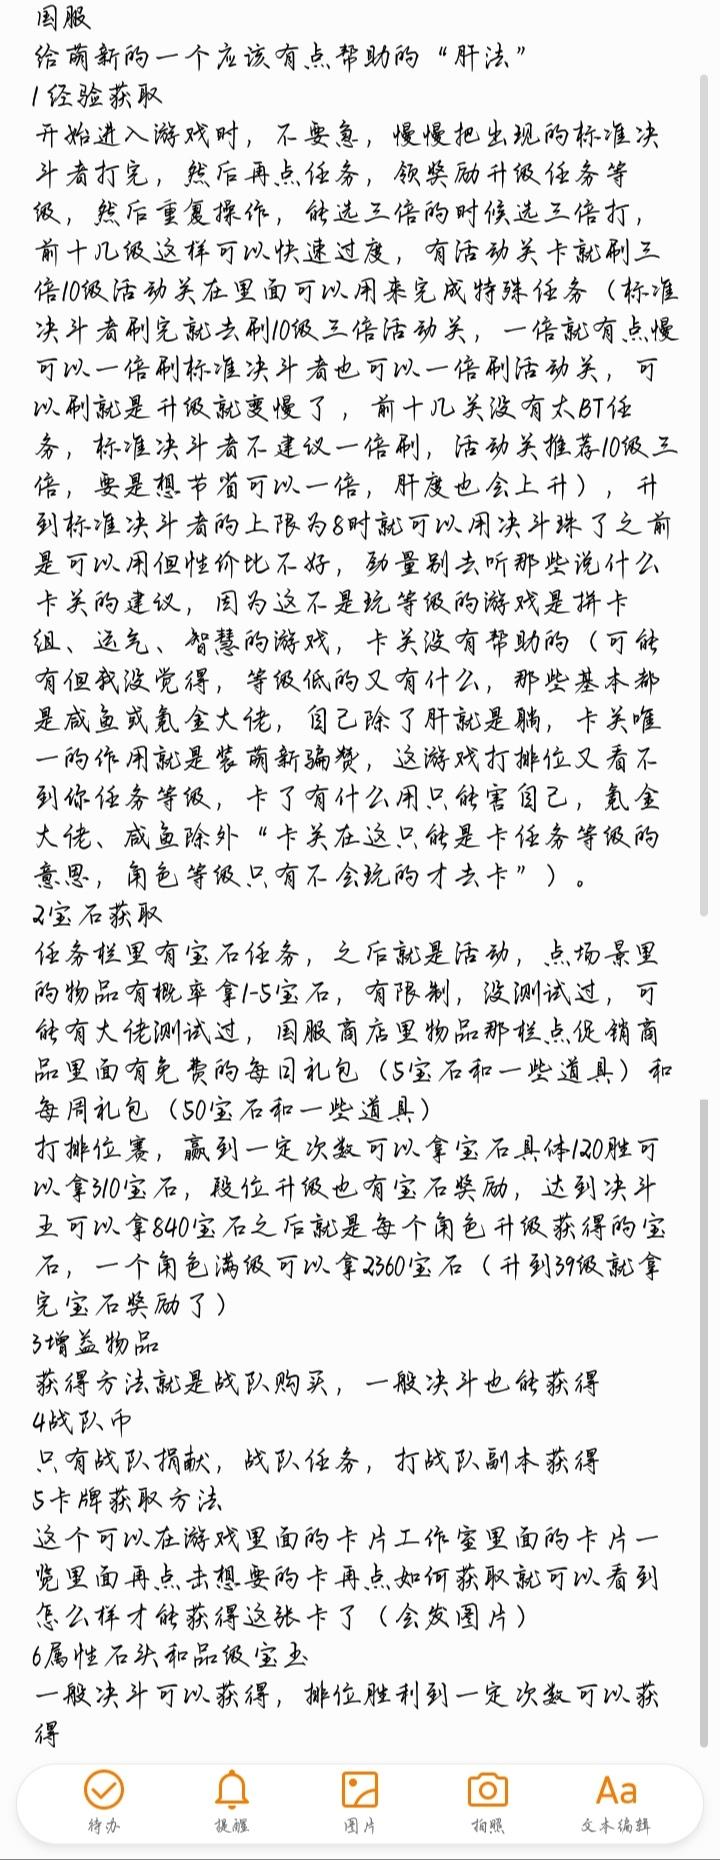 国服
给萌新的一个应该有点帮助的“肝法”
1经验获取
开始进入游戏时，不要急，慢慢把出现的标准决
斗者打完，然后再点任务，领奖励升级任务等
级，然后重复操作，能选三倍的时候选三倍打，
前十几级这样可以快速过度，有活动关卡就刷三
倍10级活动关在里面可以用来完成特殊任务（标准
决斗者刷完就去刷10级三倍活动关，一倍就有点慢
可以一倍刷标准决斗者也可以一倍刷活动关，可
以刷就是升级就变慢了，前十几关没有太BT任
务，标准决斗者不建议一倍刷，活动关推荐10级三
倍，要是想节省可以一倍，肝度也会上升），升
到标准决斗者的上限为8时就可以用决斗珠了之前
是可以用但性价比不好，劲量别去听那些说什么
卡关的建议，因为这不是玩等级的游戏是拼卡
组、运气、智慧的游戏，卡关没有帮助的（可能
有但我没觉得，等级低的又有什么，那些基本都
是咸鱼或氪金大佬，自己除了肝就是躺，卡关唯
一的作用就是装萌新骗赞，这游戏打排位又看不
到你任务等级，卡了有什么用只能害自己，氪金
大佬、咸鱼除外“卡关在这只能是卡任务等级的
意思，角色等级只有不会玩的才去卡”）。
2宝石获取
任务栏里有宝石任务，之后就是活动，点场景里
的物品有概率拿1-5宝石，有限制，没测试过，可
能有大佬测试过，国服商店里物品那栏点促销商
品里面有免费的每日礼包（5宝石和一些道具）和
每周礼包（50宝石和一些道具）
打排位赛，赢到一定次数可以拿宝石具体120胜可
以拿310宝石，段位升级也有宝石奖励，达到决斗
王可以拿840宝石之后就是每个角色升级获得的宝
石，一个角色满级可以拿2360宝石（升到39级就拿
完宝石奖励了）
3增益物品
获得方法就是战队购买，一般决斗也能获得
4战队币
只有战队捐献，战队任务，打战队副本获得
5卡牌获取方法
这个可以在游戏里面的卡片工作室里面的卡片一
览里面再点击想要的卡再点如何获取就可以看到
怎么样才能获得这张卡了（会发图片）
6属性石头和品级宝玉
一般决斗可以获得，排位胜利到一定次数可以获
得
待办 提醒 图片 拍照 文本编辑
Aa